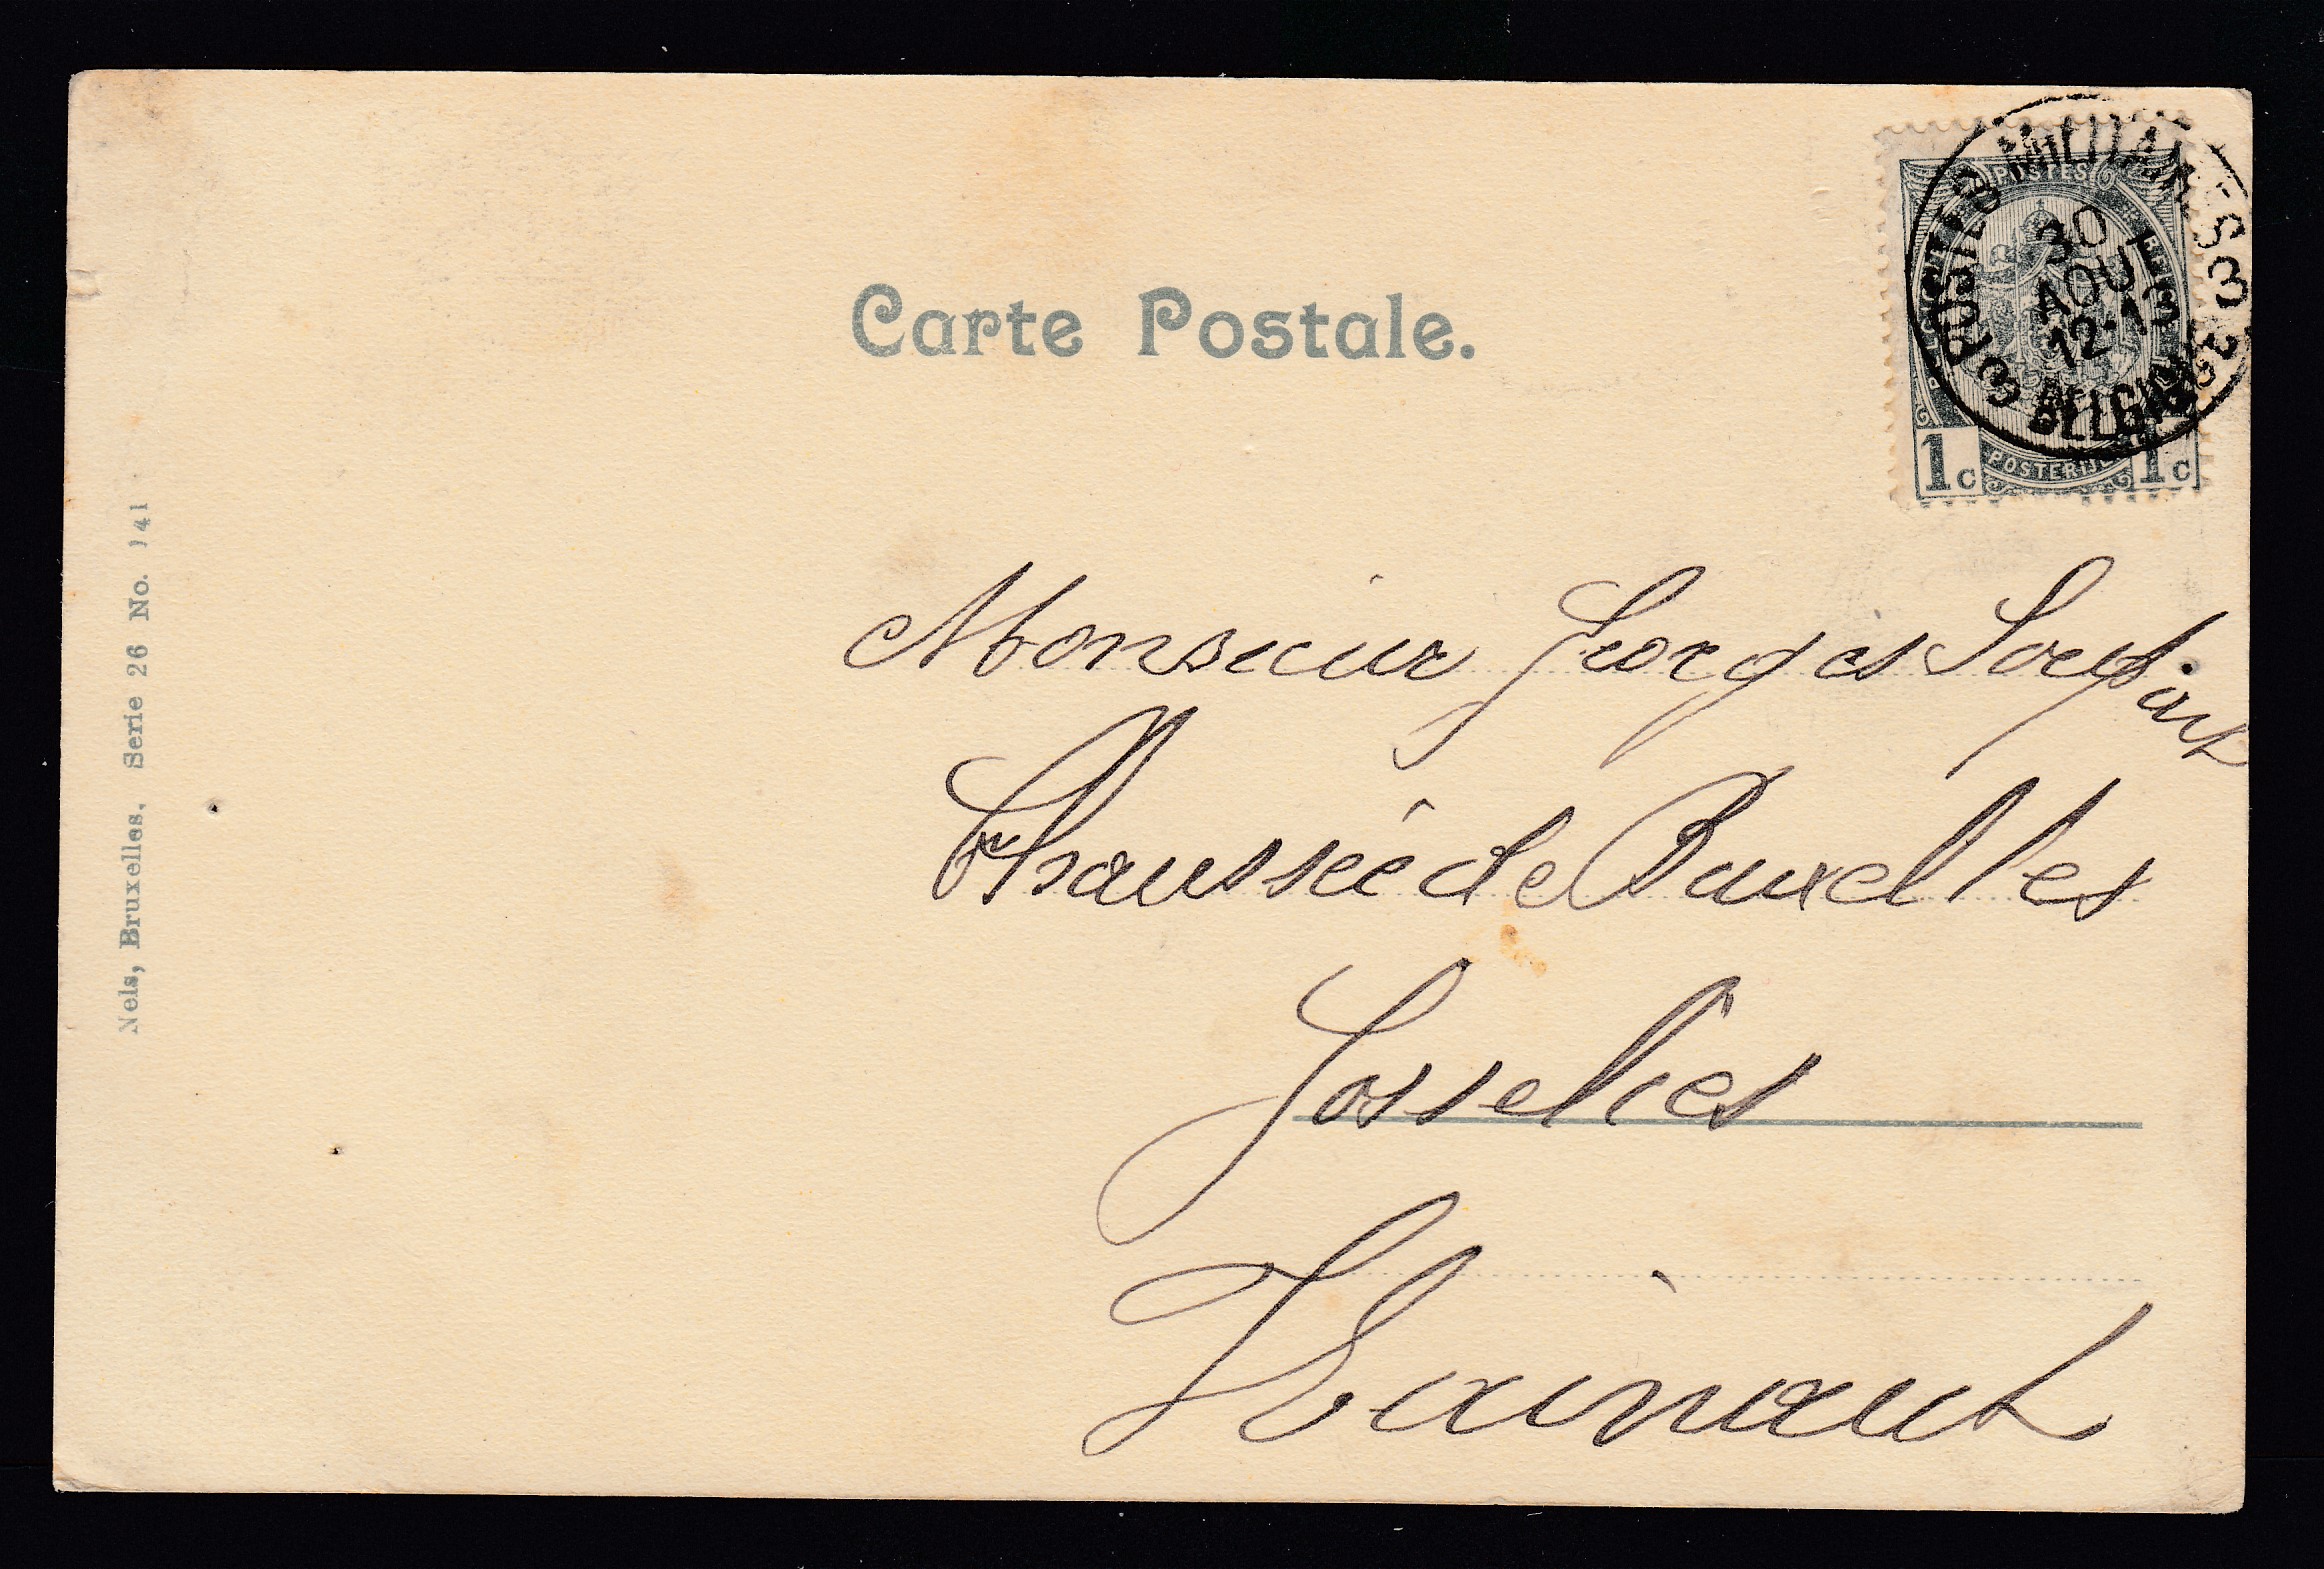 Carte Postale.
POSTES MILITAIRES 3
30
AOUT
12-13
BELGIQUE
3
POSTES
POSTERIJEN
1c 1c
Monsieur Georges
Chaussée de Bruxelles
Gosselies
Hainaut
Nels, Bruxelles. Serie 26 No. 141